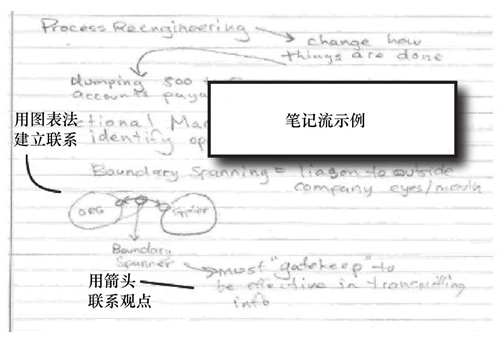 Process Reengineering
change how
things are done
dumping 500
accounts paya
用图表法
建立联系
笔记流示例
ctional Mar
identify op
Boundary Spanning = liason to outside
company eyes/mouth
ORG
Supplier
Boundary
Spanner
must "gatekeep" to
用箭头
联系观点
be effective in transmitting
info